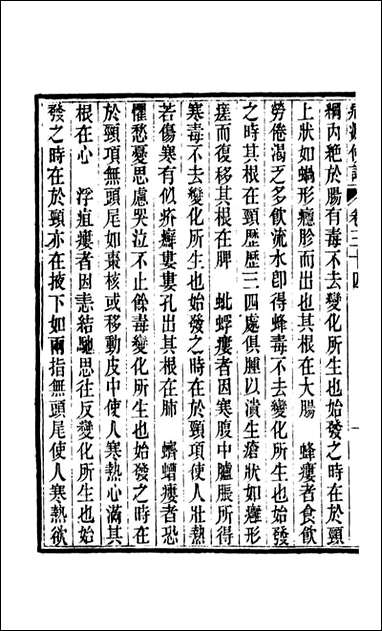 綱内絶於腸有毒不去變化所生也始發之時在於頸
上狀如蝸形癮胗而出也其根在大腸　蜂瘻者食飲
勞倦渴乏多飲流水卽得蜂毒不去變化所生也始發
之時其根在頸歷歷三四處俱腫以潰生瘡狀如癰形
瘥而復移其根在脾　蚍蜉瘻者因寒腹中臚脹所得
寒毒不去變化所生也始發之時在於頸項使人壯熱
若傷寒有似疥癬婁婁孔出其根在肺　蠐螬瘻者恐
懼愁憂思慮哭泣不止餘毒變化所生也始發之時在
於頸項無頭尾如棗核或移動皮中使人寒熱心滿其
根在心　浮疽瘻者因恚結馳思往反變化所生也始
發之時在於頸亦在掖下如兩指無頭尾使人寒熱欲